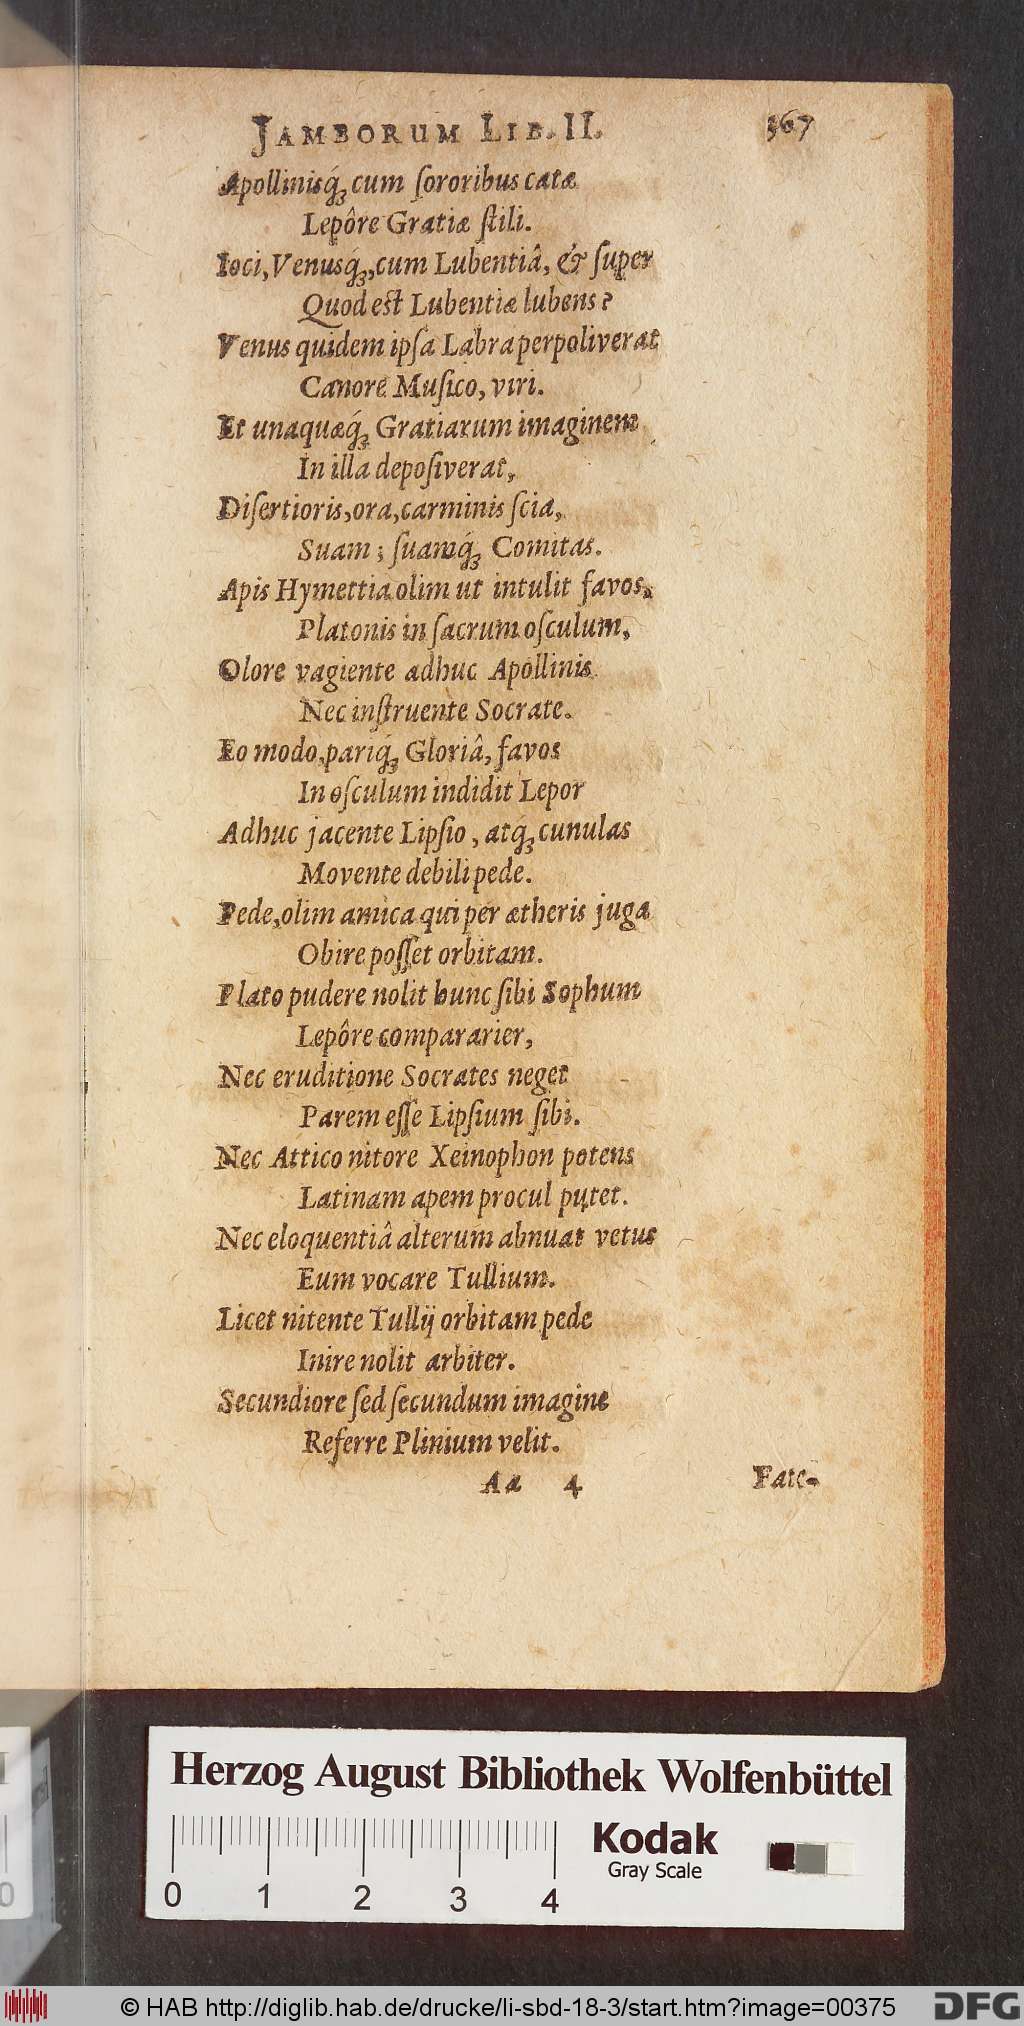 JAMBORUM LIB. II. 367
Apollinisq́ꝫ cum ſororibus catæ
Lepôre Gratiæ ſtili.
Ioci, Venusq́ꝫ, cum Lubentiâ, & ſuper
Quod est Lubentiæ lubens?
Venus quidem ipſa Labra perpoliverat
Canore Muſico, viri.
Et unaquæq́ꝫ Gratiarum imaginem
In illa depoſiverat,
Diſertioris, ora, carminis ſcia,
Suam; ſuamq́ꝫ Comitas.
Apis Hymettia olim ut intulit favos,
Platonis in ſacrum oſculum,
Olore vagiente adhuc Apollinis
Nec inſtruente Socrate.
Eo modo, pariq́ꝫ Gloriâ, favos
In oſculum indidit Lepor
Adhuc jacente Lipſio, atq́ꝫ cunulas
Movente debili pede.
Pede, olim amica qui per ætheris juga
Obire poſſet orbitam.
Plato pudere nolit hunc ſibi Sophum
Lepôre compararier,
Nec eruditione Socrates neget
Parem eſſe Lipſium ſibi.
Nec Attico nitore Xeinophon potens
Latinam apem procul putet.
Nec eloquentiâ alterum abnuat vetus
Eum vocare Tullium.
Licet nitente Tullij orbitam pede
Inire nolit arbiter.
Secundiore ſed ſecundum imagine
Referre Plinium velit.
Aa 4 Fate-
Herzog August Bibliothek Wolfenbüttel
Kodak
Gray Scale
0 1 2 3 4
© HAB http://diglib.hab.de/drucke/li-sbd-18-3/start.htm?image=00375
DFG